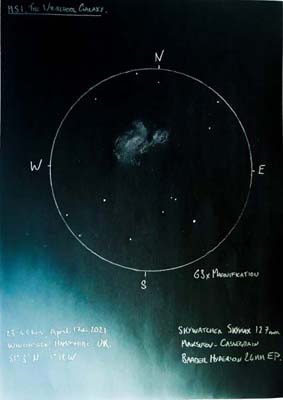 M51. THE WHIRLPOOL GALAXY.
N
W
E
S
63x MAGNIFICATION
23:40hrs April 17th 2021
WINCHESTER HAMPSHIRE UK.
51° 3' N 1° 18' W
SKYWATCHER SKYMAX 127mm
MAKSUTOV-CASSEGRAIN
BAADER HYPERION 24mm EP.